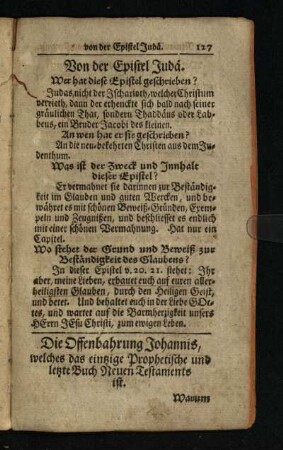 von der Epistel Judä. 127
Von der Epistel Judä.
Wer hat diese Epistel geschrieben?
Judas, nicht der Jscharioth, welcher Christum
verrieth, dann der erhenckte sich bald nach seiner
gräulichen That, sondern Thaddäus oder Lab-
beus, ein Bruder Jacobi des kleinen.
An wen hat er sie geschrieben?
An die neu-bekehrten Christen aus dem Ju-
denthum.
Was ist der Zweck und Innhalt
dieser Epistel?
Er vermahnet sie darinnen zur Beständig-
keit im Glauben und guten Wercken, und be-
währet es mit schönen Beweiß-Gründen, Exem-
peln und Zeugnißen, und beschliesset es endlich
mit einer schönen Vermahnung. Hat nur ein
Capitel.
Wo stehet der Grund und Beweiß zur
Beständigkeit des Glaubens?
In dieser Epistel v. 20. 21. stehet: Ihr
aber, meine Lieben, erbauet euch auf euren aller-
heiligsten Glauben, durch den Heiligen Geist,
und betet. Und behaltet euch in der Liebe GOt-
tes, und wartet auf die Barmhertzigkeit unsers
HErrn JEsu Christi, zum ewigen Leben.
Die Offenbahrung Johannis,
welches das eintzige Prophetische und
letzte Buch Neuen Testaments
ist.
Warum